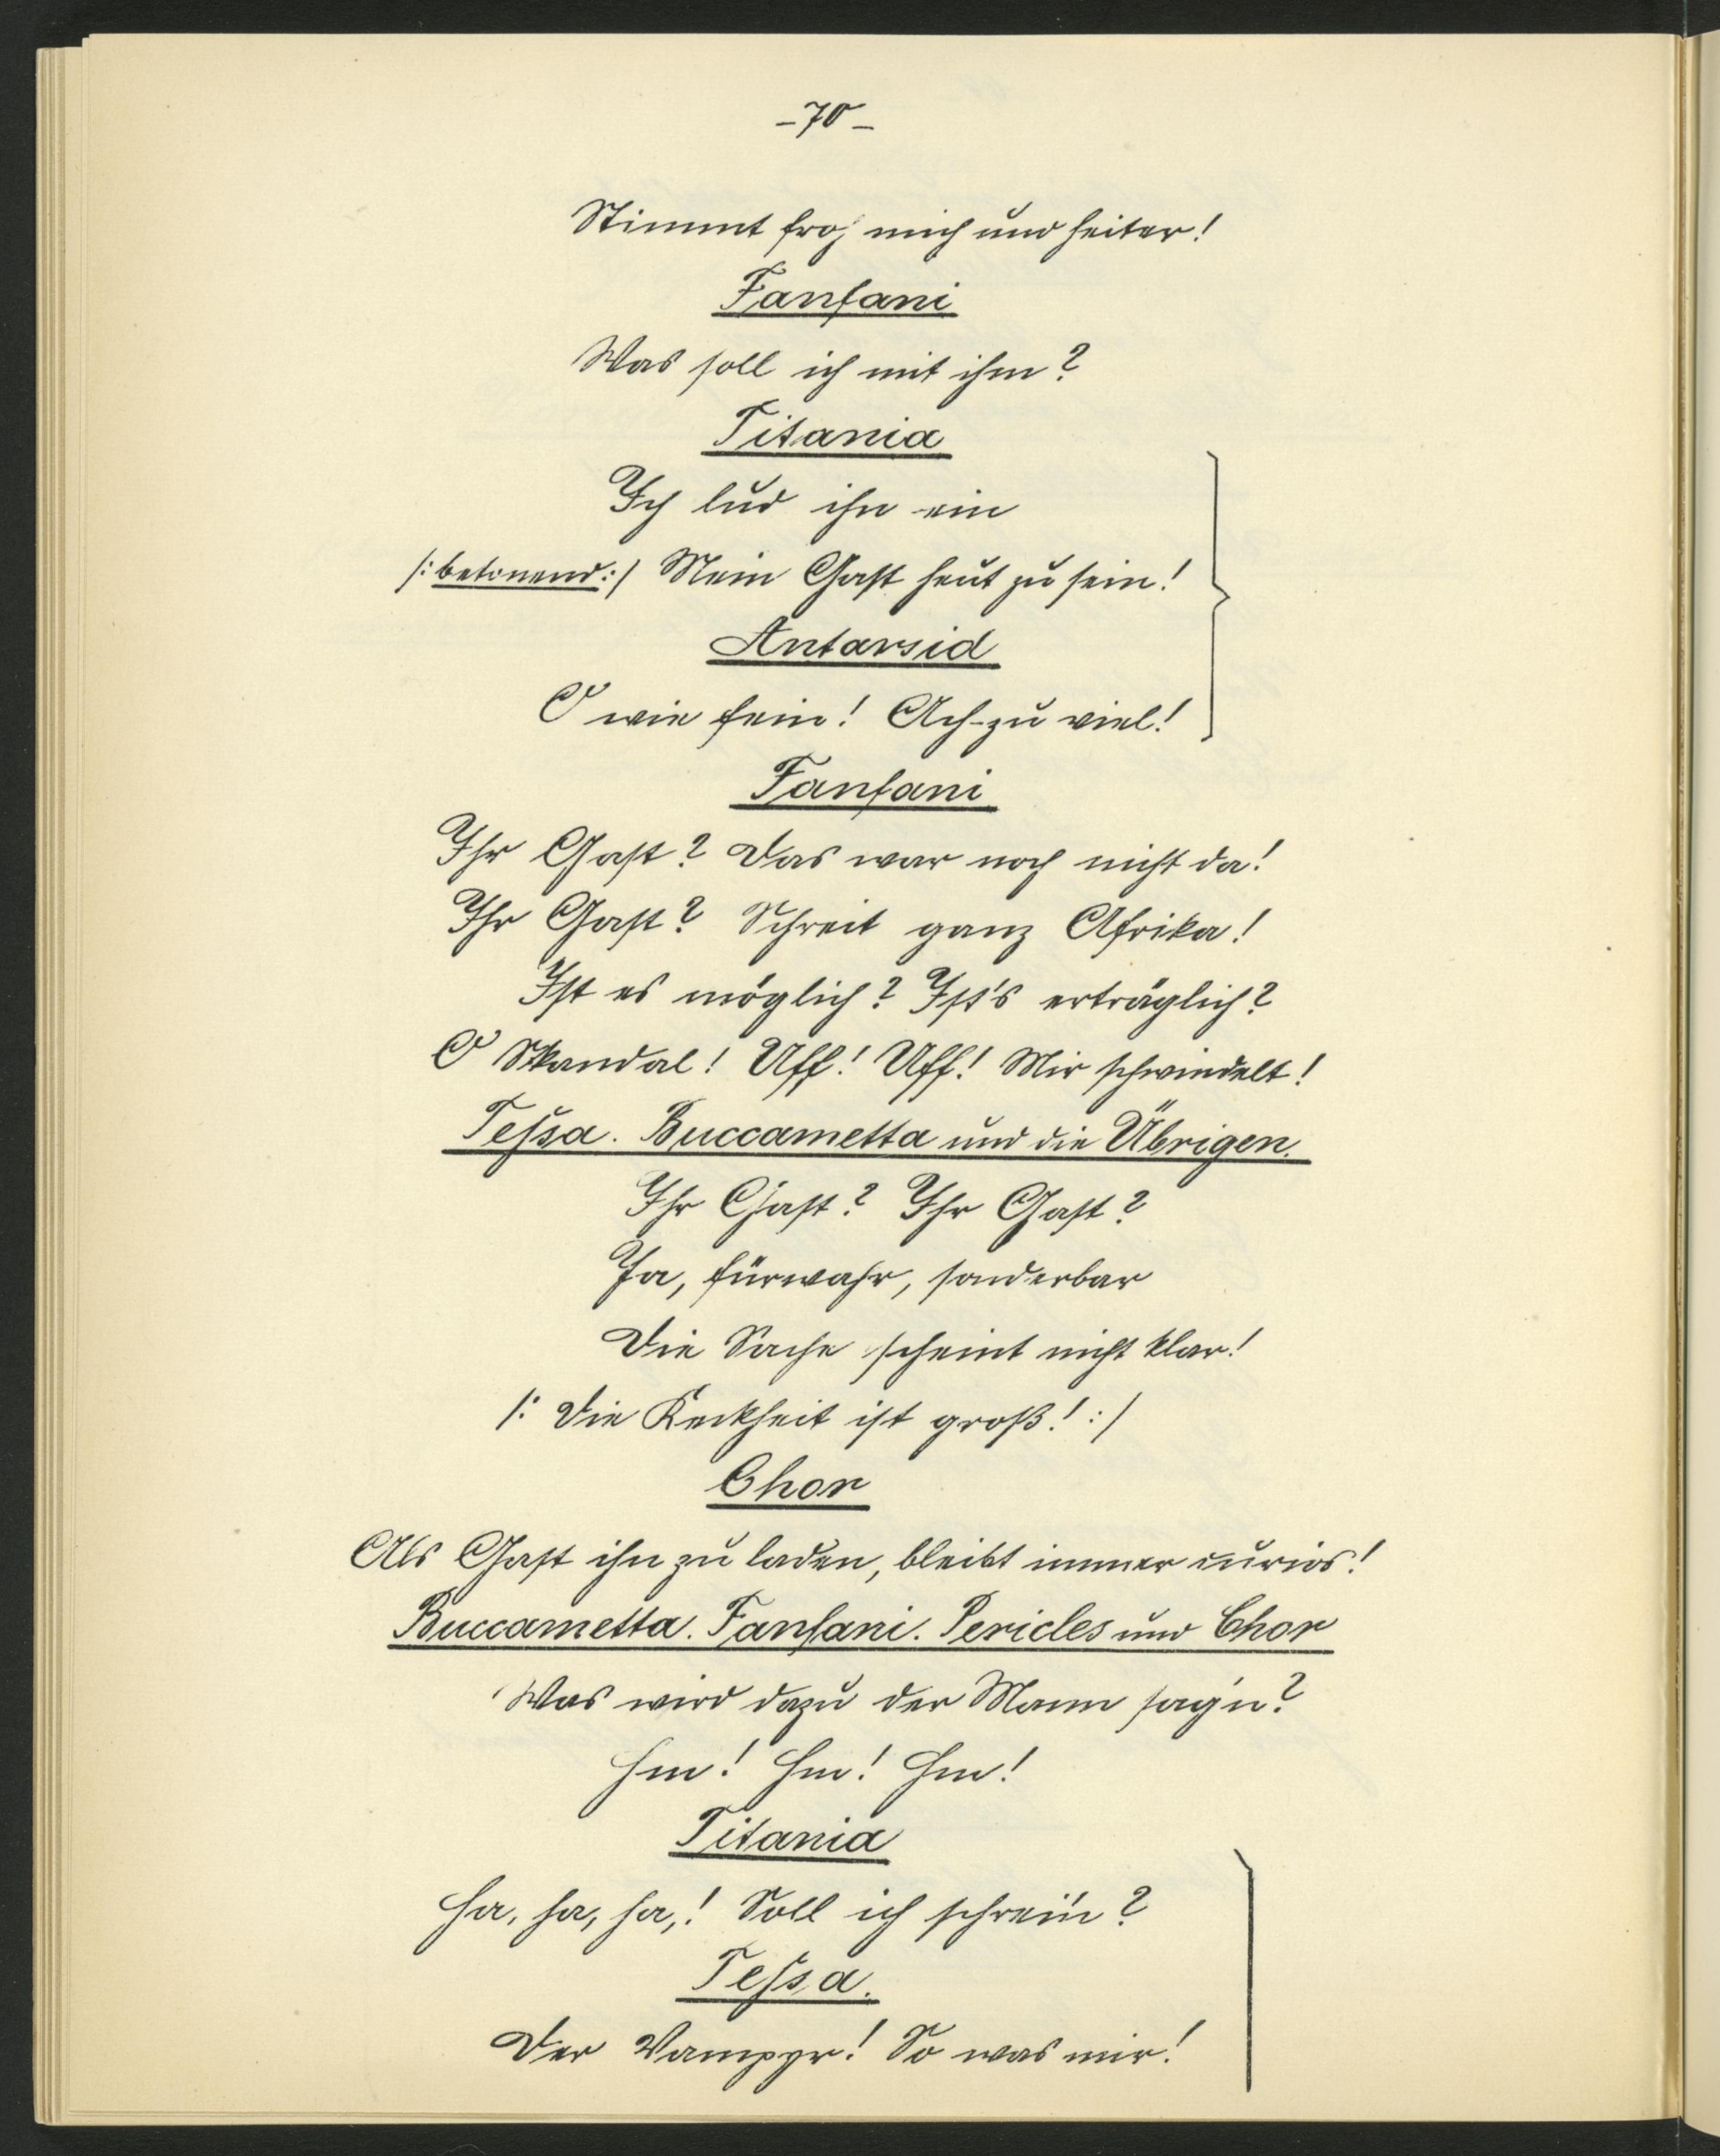 -70-
Stimmt froh mich und heiter!
Fanfani
Was soll ich mit ihm?
Titania
Ich lud ihn ein
/: betonend :/ Mein Gast heut zu sein!
Antarsid
O wie fein! Ach-zu viel!
Fanfani
Ihr Gast? Das war noch nicht da!
Ihr Gast? Schreit ganz Afrika!
Ist es möglich? Ist's erträglich?
O Skandal! Uff! Uff! Mir schwindelt!
Teſsa. Buccametta und die Übrigen.
Ihr Gast? Ihr Gast?
Ja, fürwahr, sonderbar
Die Sache scheint nicht klar!
/: Die Keckheit ist groß! :/
Chor
Als Gast ihn zu laden, bleibt immer curios!
Buccametta. Fanfani. Pericles und Chor
Was wird dazu der Mann sag'n?
Hm! Hm! Hm!
Titania
Ha, ha, ha,! Soll ich schrei'n?
Teſsa.
Der Vampyr! So was mir!